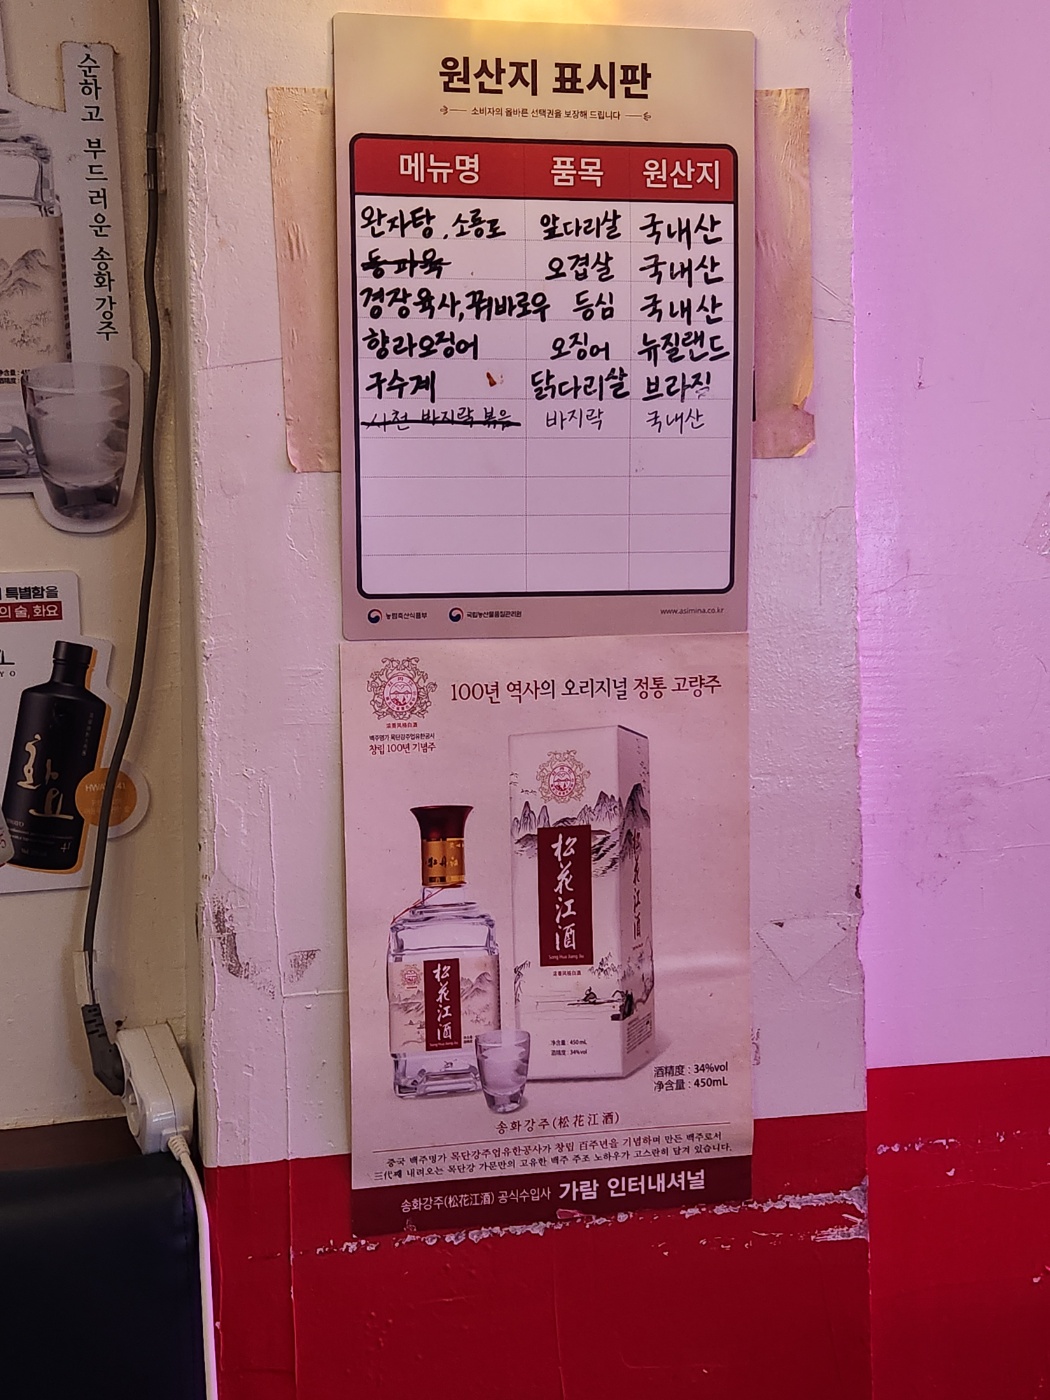 순하고 부드러운 송화강주
특별함을
의 술, 화요
화요
원산지 표시판
소비자의 올바른 선택권을 보장해 드립니다
메뉴명 품목 원산지
완자탕, 소룡포 앞다리살 국내산
동파육 오겹살 국내산
경장육사, 꿔바로우 등심 국내산
향라오징어 오징어 뉴질랜드
구수계 닭다리살 브라질
사천 바지락 볶음 바지락 국내산
농림축산식품부 국립농산물품질관리원 www.asimina.co.kr
100년 역사의 오리지널 정통 고량주
백주명가 목단강주업유한공사
창립 100년 기념주
松花江酒
Song Hua Jiang Jiu
浓香风格白酒
净含量 : 450mL
酒精度 : 34%vol
松花江酒
酒精度 : 34%vol
净含量 : 450mL
송화강주(松花江酒)
중국 백주명가 목단강주업유한공사가 창립 백주년을 기념하며 만든 백주로서
三代째 내려오는 목단강 가문만의 고유한 백주 주조 노하우가 고스란히 담겨 있습니다.
송화강주(松花江酒) 공식수입사 가람 인터내셔널